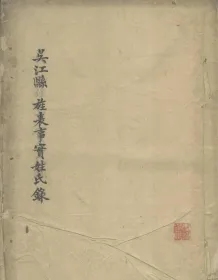 吳江縣旌表事實姓氏錄